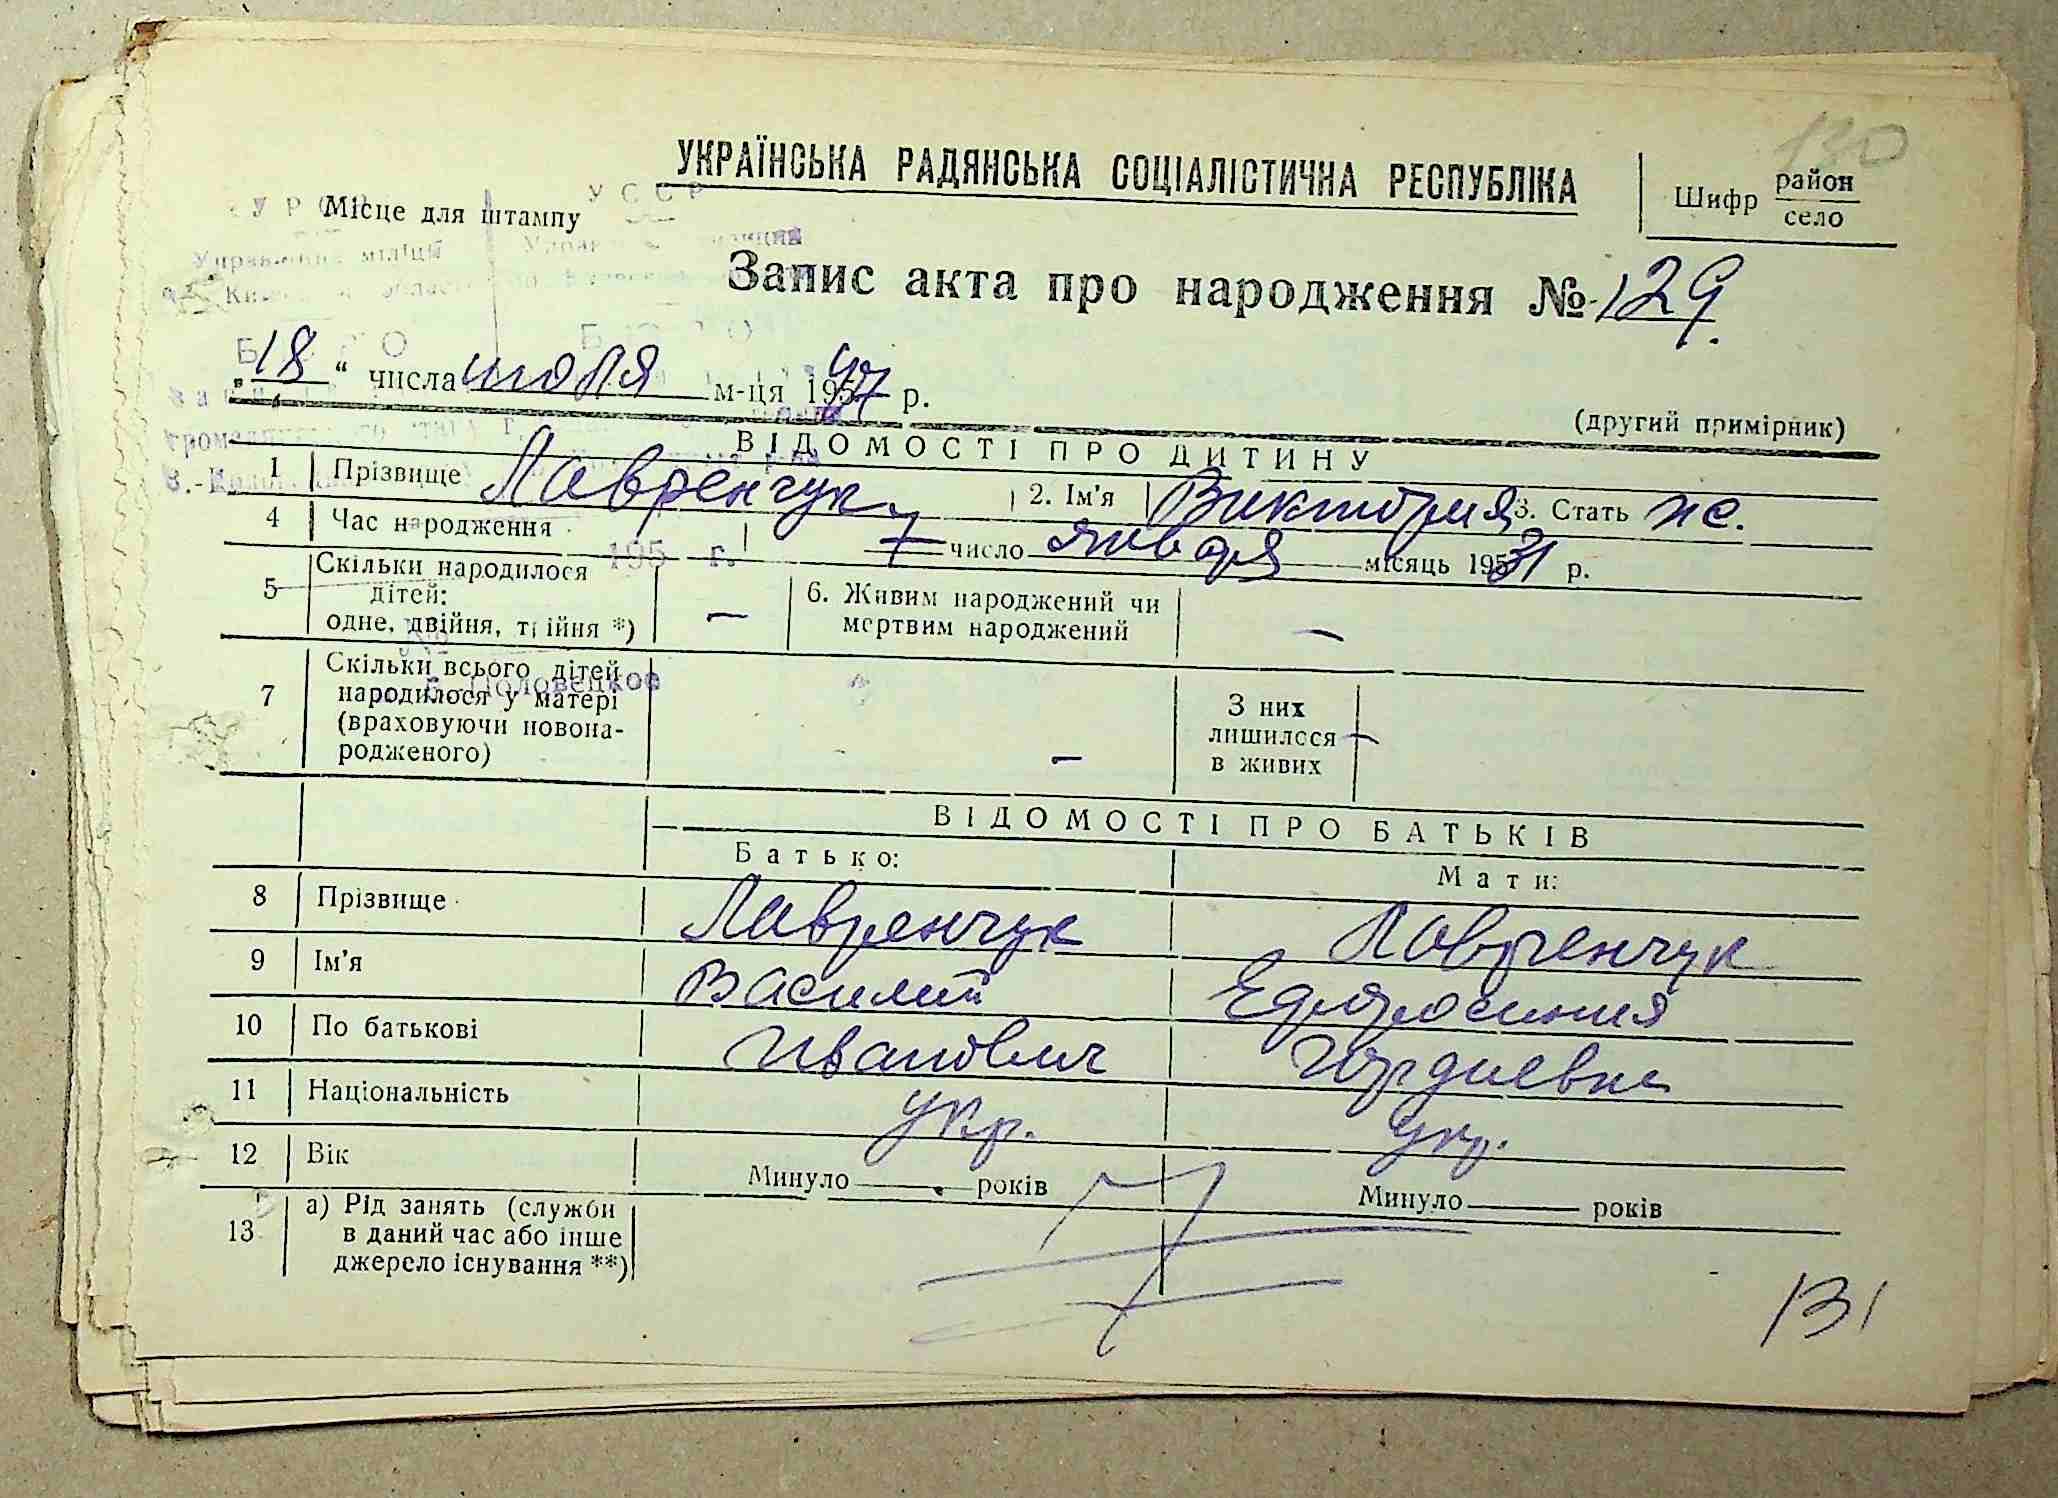 130
УКРАЇНСЬКА РАДЯНСЬКА СОЦІАЛІСТИЧНА РЕСПУБЛІКА
Шифр район
село
Місце для штампу
УССР
Запис акта про народження № 129.
„18“ числа июля м-ця 1957 р.
(другий примірник)
ВІДОМОСТІ ПРО ДИТИНУ
1 Прізвище Лавренчук 2. Ім'я Виктория 3. Стать ж.
4 Час народження 7 число января місяць 1931 р.
195 г.
5 Скільки народилося дітей: одне, двійня, трійня *) — 6. Живим народжений чи мертвим народжений —
7 Скільки всього дітей народилося у матері (враховуючи новонародженого) — З них лишилося в живих —
Б.-Половецкое
ВІДОМОСТІ ПРО БАТЬКІВ
Батько: Мати:
8 Прізвище Лавренчук Лавренчук
9 Ім'я Василий Ефросиния
10 По батькові Иванович Гордиевна
11 Національність укр. укр.
12 Вік Минуло — років Минуло — років
13 а) Рід занять (служби в даний час або інше джерело існування **)
131